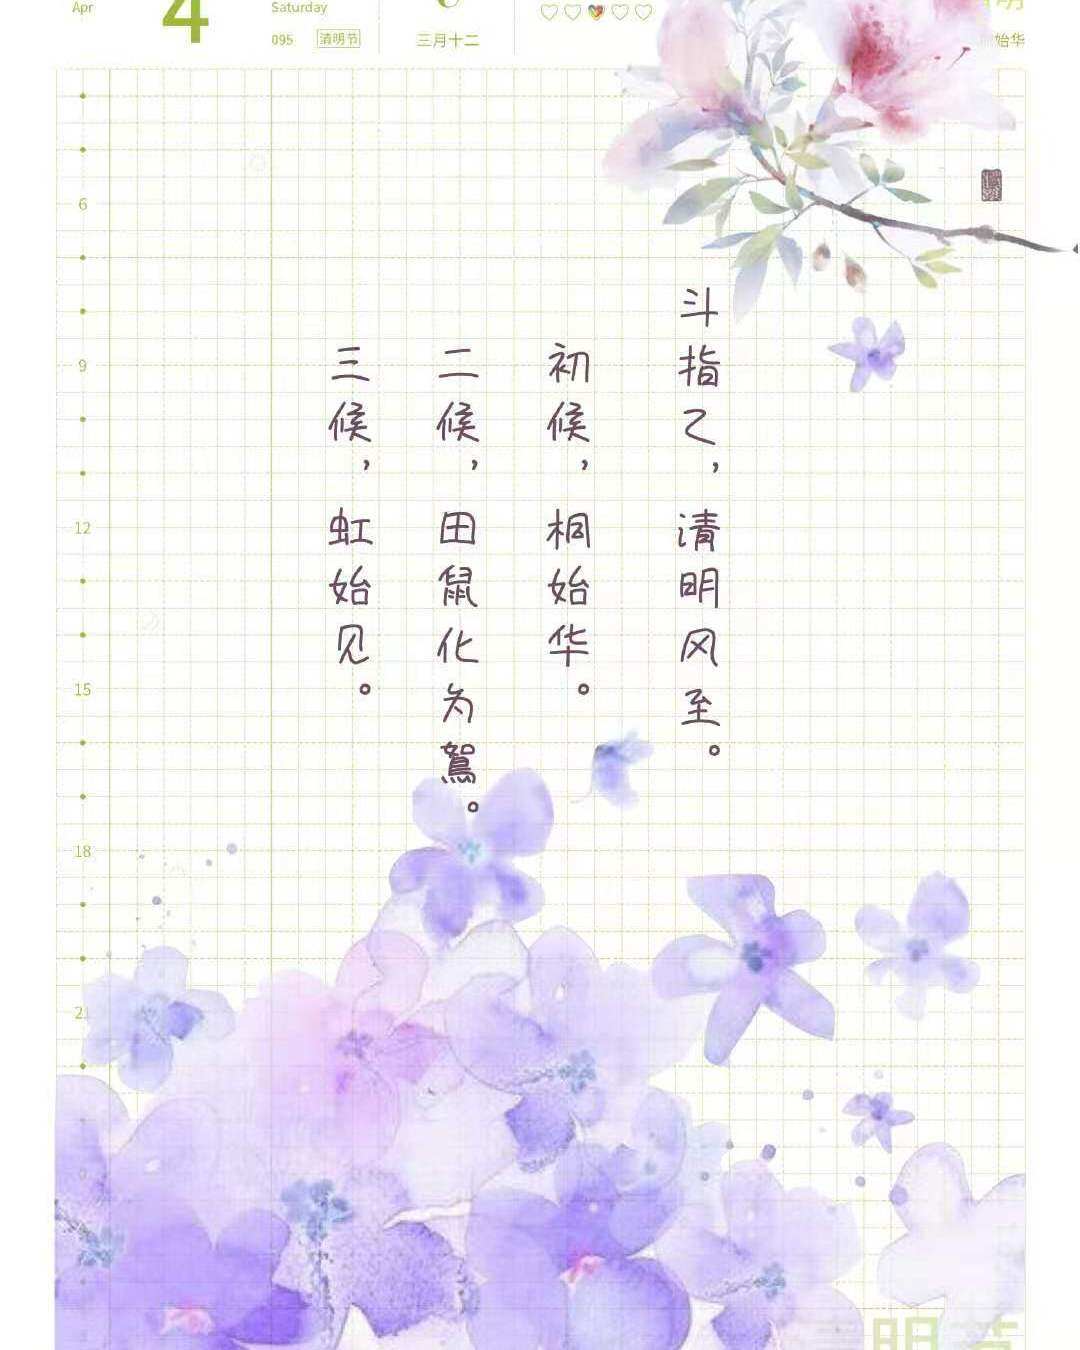 Apr
4
Saturday
095 清明节
三月十二
始华
斗指乙，清明风至。
初候，桐始华。
二候，田鼠化为鴽。
三候，虹始见。
6
9
12
15
18
21